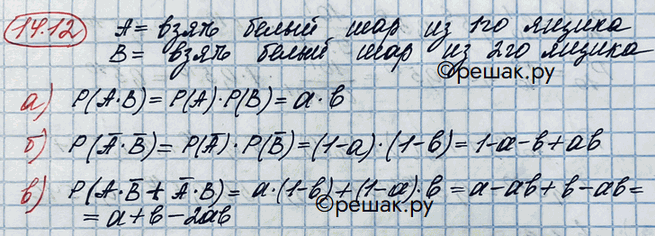 14.12 A = взять белый шар из 1го ящика
B = взять белый шар из 2го ящика
©решак.ру
а) P(A·B) = P(A)·P(B) = a·b
б) P(A̅·B̅) = P(A̅)·P(B̅) = (1-a)·(1-b) = 1-a-b+ab
в) P(A·B̅ + A̅·B) = a·(1-b)+(1-a)·b = a-ab+b-ab=
= a+b-2ab
©решак.ру